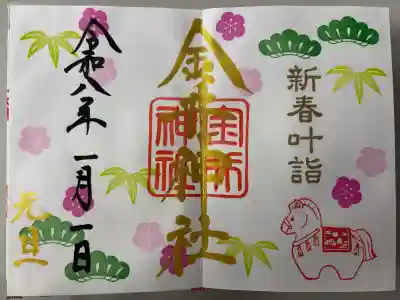 新春叶詣
金 神社
神社
令和八年 一月一日
元旦